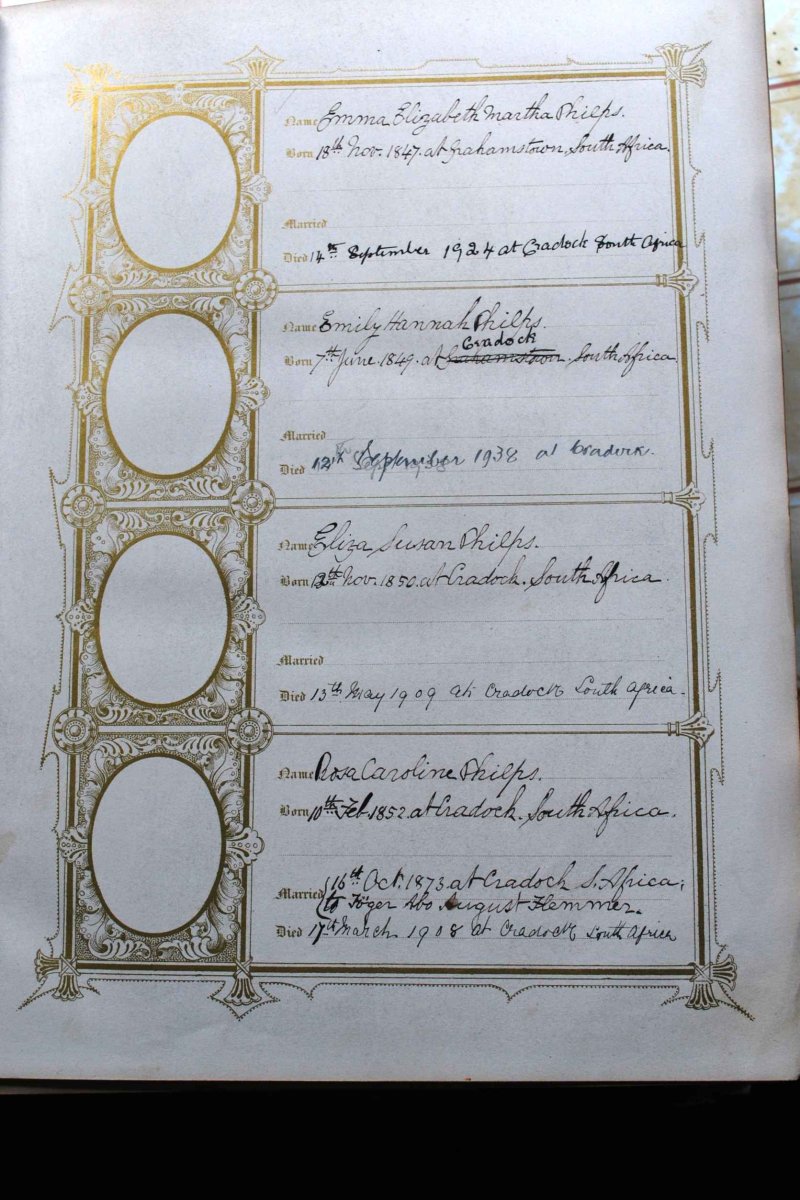 Name Emma Elizabeth Martha Philps.
Born 18th Nov. 1847. at Grahamstown, South Africa.
Married
Died 14th September 1924 at Cradock South Africa
Name Emily Hannah Philps.
Cradock
Born 7th June 1849. at Grahamstown. South Africa.
Married
Died 12th September 1938 at Cradock.
Name Eliza Susan Philps.
Born 12th Nov. 1850. at Cradock. South Africa.
Married
Died 13th May 1909 at Cradock South Africa.
Name Rosa Caroline Philps.
Born 10th Feb. 1852. at Cradock. South Africa.
16th Oct. 1873. at Cradock S. Africa;
Married to Abo August Flemmer.
Died 17th March 1908 at Cradock South Africa